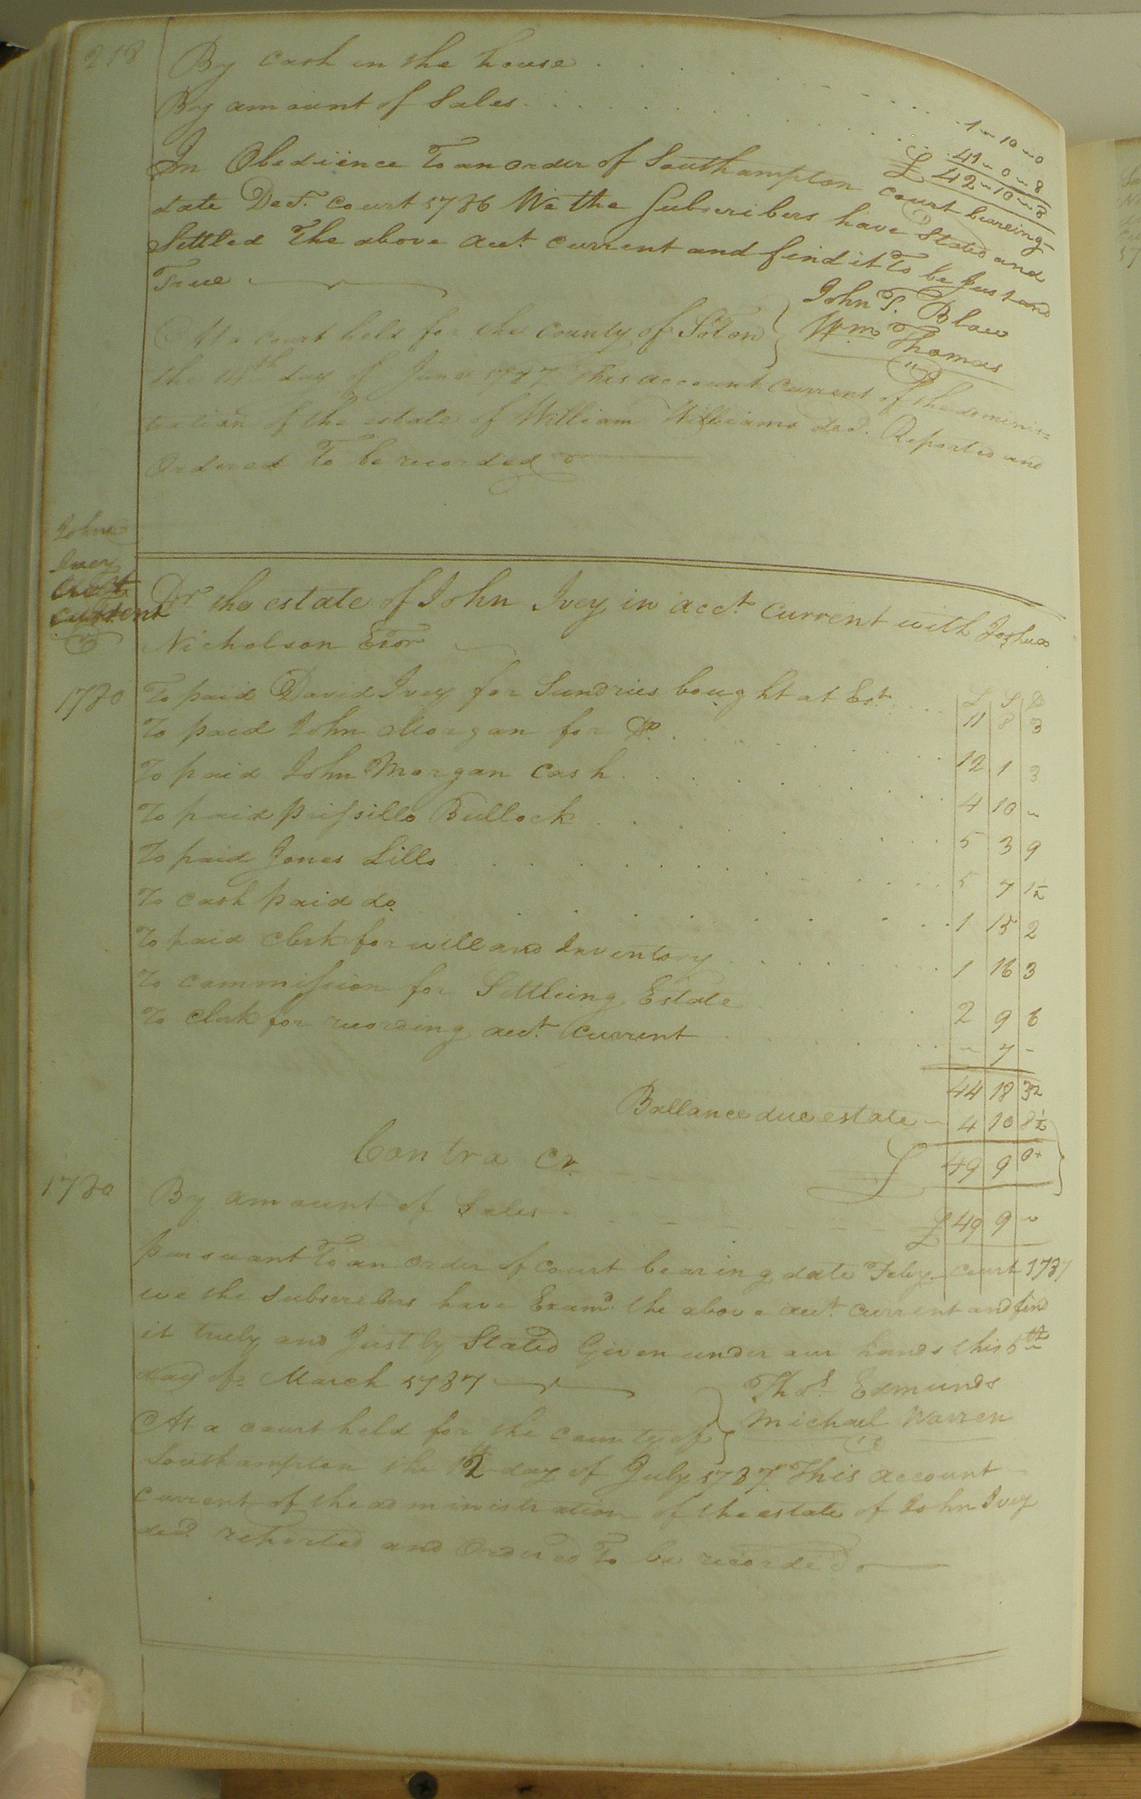 218
By cash in the house . . . 1 - 10 - 0
By amount of Sales . . . 41 - 0 - 8
£ 42 - 10 - 8
In Obediënce To an order of Southampton court beareing
date Dec.r court 1786 We the Subscribers have Stated and
Settled The above acct. current and find it to be Just and
True
John T. Blow
Wm. Thomas
At a court held for the county of Soton
the 14th day of June 1787 This account Current of the adminis=
tration of the estate of William Williams decd. Reported and
Ordered To be recorded
John
Ivey
Acct
current
Dr. the estate of John Ivey in acct. current with Joshua
Nicholson Exor
£ S D
1780 To paid David Ivey for Sundries bought at Est. . . 11 8 3
To paid John Morgan for Do. . . 12 1 3
To paid John Morgan Cash . . 4 10 -
To paid prissilla Bullock . . 5 3 9
To paid Jones Lills . . 5 7 1½
To cash paid do. . . 1 15 2
To paid clerk for will and Inventory . . 1 16 3
To commission for Settleing Estate . . 2 9 6
To clerk for recording acct. current . . - 7 -
44 18 3½
Ballance due estate - 4 10 8½
£ 49 9 0
Contra Cr.
1780 By amount of Sales - - - £ 49 9 -
pursuant To an order of court bearing date Feby. court 1787
we the Subscribers have Examd. the above acct. current and find
it truely and Justly Stated Given under our hands this 5th
day of March 1787
Thos. Edmunds
Michael Warren
At a court held for the county of
Southampton the 12 day of July 1787. This account
current of the administration of the estate of John Ivey
decd. reported and Ordered To be recorded